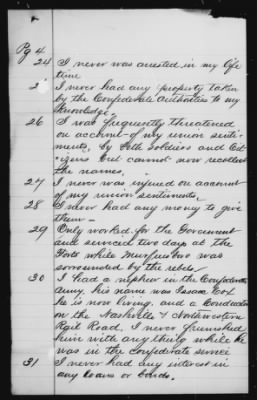 Pg 4
24 I never was arrested in my life
time
2 I never had any property taken
by the Confederate authorities to my
Knowledge.
26 I was frequently threatened
on account of my union senti-
ments, by both Soldiers and Cit-
izens but cannot now recollect
the names.
27 I never was injured on account
of my union sentiments.
28 I never had any money to give
them -
29 Only worked for the Government
and serviced two days at the
Forts while Murfreesboro was
sorrounded by the rebels
30 I had a nephew in the Confederate
army his name was Isaac Cox
he is now living, and a Conductor
on the Nashville & Northwestern
Rail Road. I never furnished
him with any thing while he
was in the Confederate service
31 I never had any interest in
any loans or bonds.